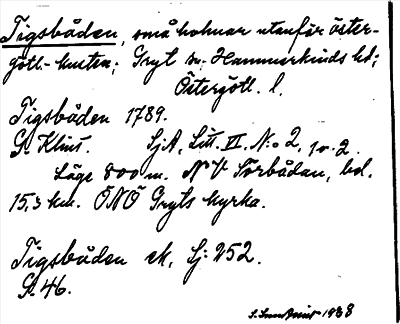 Tigsbåden, små holmar utanför öster-
götl.-kusten; Gryt sn; Hammarkinds hd;
Östergötl. l.
Tigsbåden 1789.
G. Klint. SjA, Litt. VI. No 2, 
Läge 800 m. NV Torbådan, bel.
15,3 km. ÖNÖ Gryts kyrka.
Tigsbåden ek, Sj: 252.
G. 46.
1938